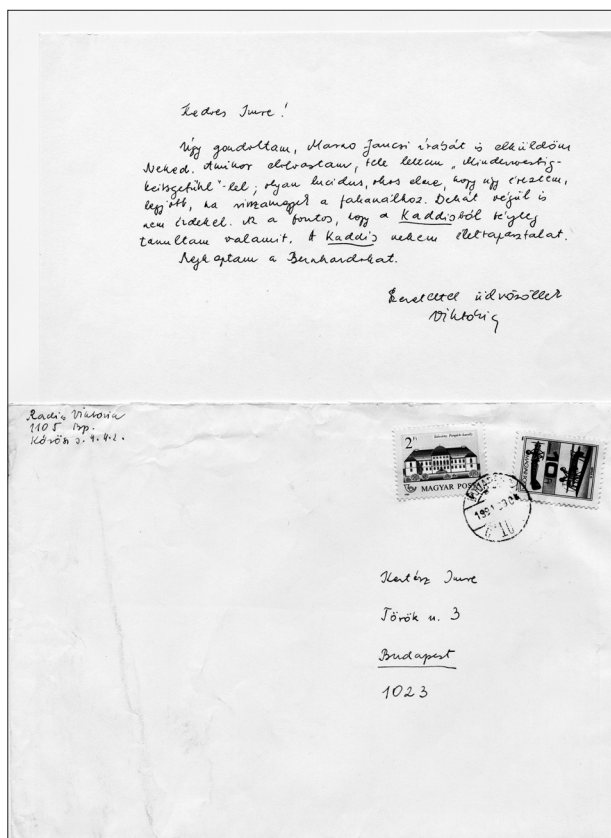 Kedves Imre!
Úgy gondoltam, Marno Jancsi írását is elküldöm
Neked. Amikor elolvastam, tele lettem „Minderwertig-
keitsgefühl"-lel; olyan lucidus, okos elme, hogy úgy éreztem,
legjobb, ha visszamegyek a fakanálhoz. Dehát végül is
nem érdekel. Az a fontos, hogy a Kaddisból tényleg
tanultam valamit. A Kaddis nekem élettapasztalat.
Megkaptam a Bernhardokat.
Szeretettel üdvözöllek
Viktória
Radics Viktória
1105 Bp.
Kőrösi
2 Ft
MAGYAR POSTA
BUDAPEST
1991
Kertész Imre
Török u. 3
Budapest
1023